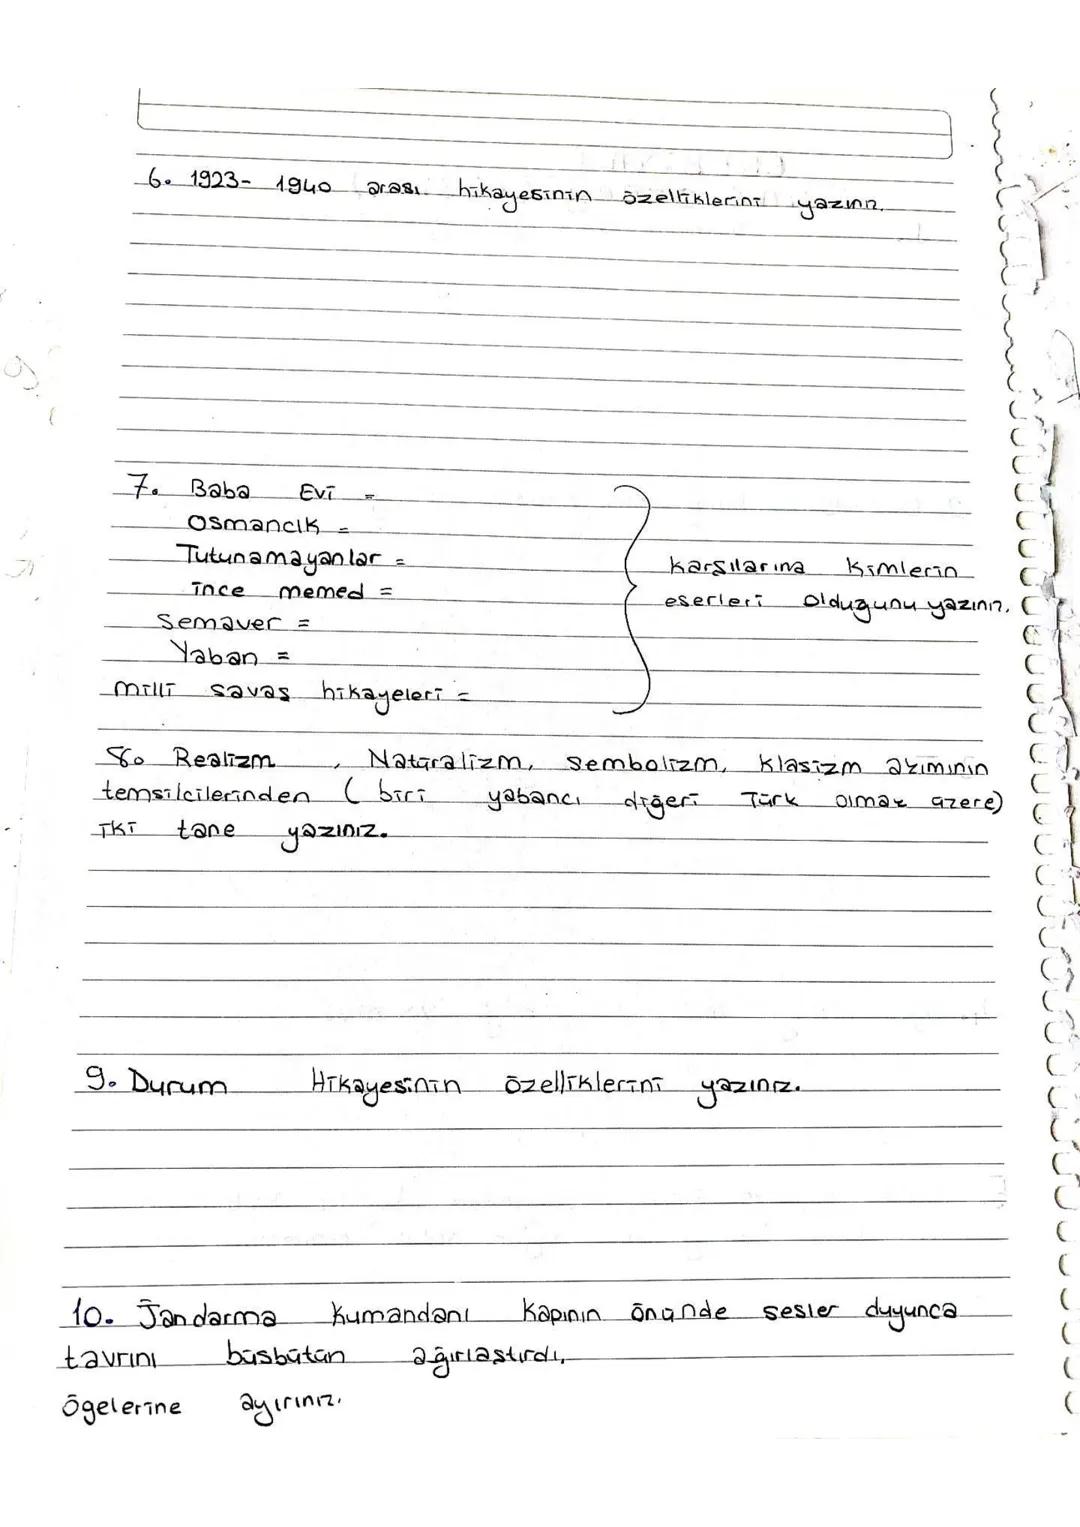 6. 1923- 1940 arası hikayesinin özelliklerini yazınız.
7. Baba Evi =
Osmancık =
Tutunamayanlar =
ince memed =
Semaver =
Yaban =
milli savaş hikayeleri =
karşılarına kimlerin
eserleri olduğunu yazınız.
8. Realizm, Natüralizm, sembolizm, klasizm akımının
temsilcilerinden ( biri yabancı diğeri Türk olmak üzere)
iki tane yazınız.
9. Durum Hikayesinin özelliklerini yazınız.
10. Jandarma kumandanı kapının önünde sesler duyunca
tavrını büsbütün ağırlaştırdı,
Ögelerine ayırınız.